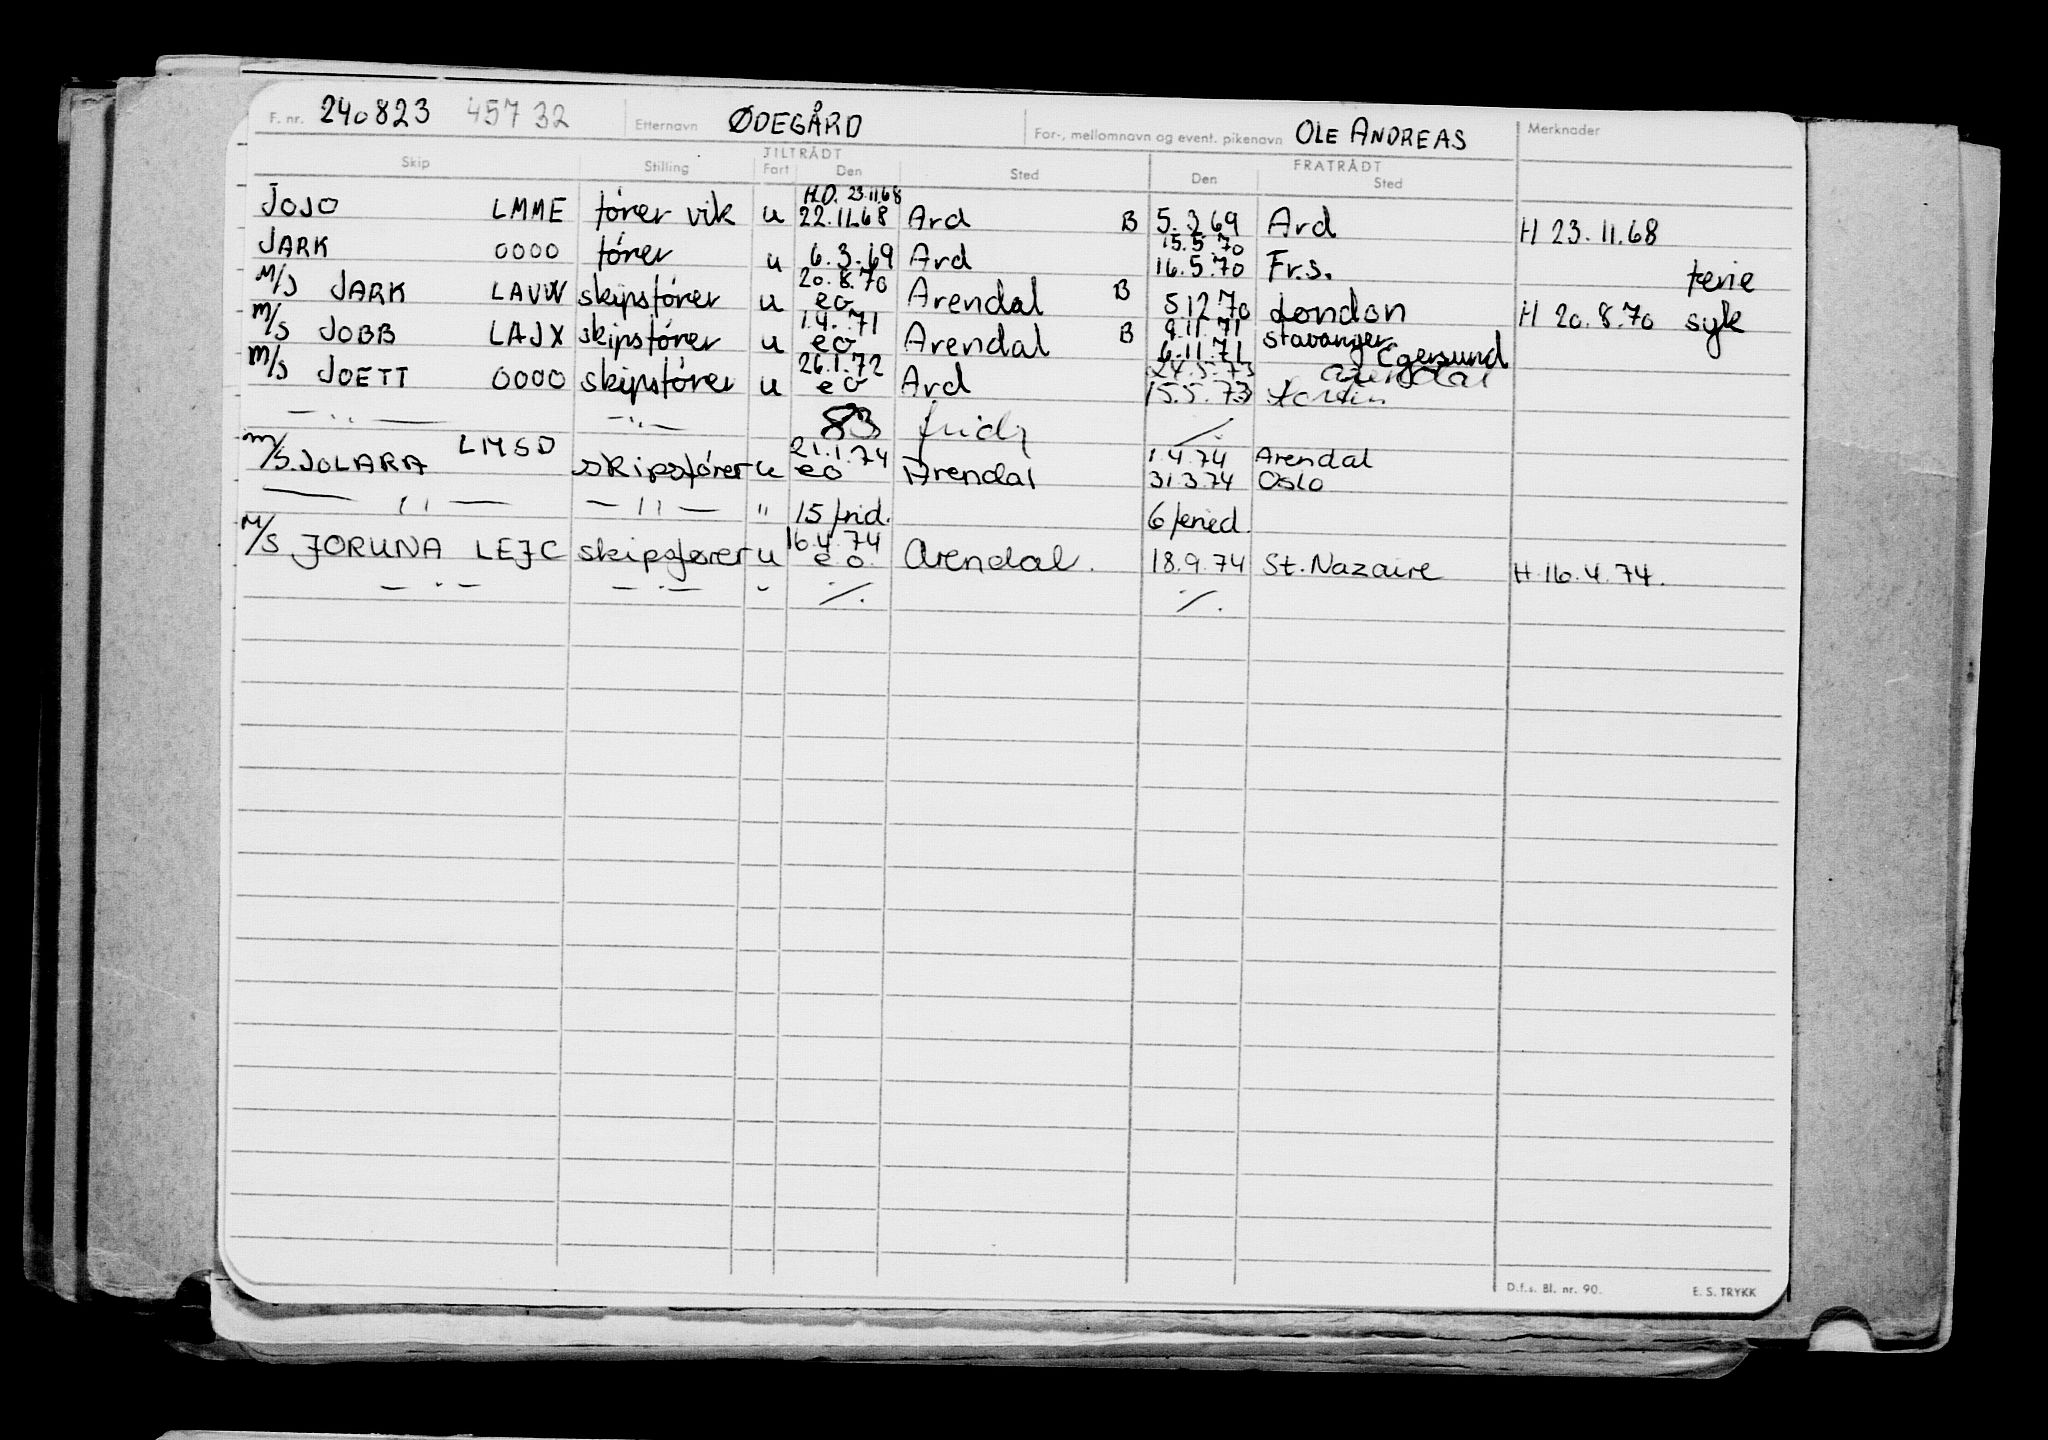 F. nr. 240823 45732 Etternavn ØDEGÅRD For-, mellomnavn og event. pikenavn OLE ANDREAS Merknader
TILTRÅDT FRATRÅDT
Skip Stilling Fart Den Sted Den Sted
H.O. 23.11.68
JOJO LMME fører vik u 22.11.68 Ard B 5.3.69 Ard H 23.11.68
15.5.70
JARK OOOO fører u 6.3.69 Ard 16.5.70 Fr.s. ferie
20.8.70
M/S JARK LAVW skipsfører u eo Arendal B 5.12.70 London H 20.8.70 syk
1.4.71 9.11.71 Stavanger
M/S JOBB LAJX skipsfører u eo Arendal B 6.11.71 Egersund
26.1.72 24.5.73 Arendal
M/S JOETT OOOO skipsfører u eo Ard 15.5.73
— " — — " — 83 frid /.
LMSD 21.1.74 1.4.74 Arendal
M/S JOLARA skipsfører u eo Arendal 31.3.74 Oslo
— " — — " — " 15 frid. 6 feried.
16.4.74
M/S JORUNA LEJC skipsfører u e o. Arendal. 18.9.74 St. Nazaire H 16.4.74.
— " — — " — " /. /.
D.f.s. Bl. nr. 90. E. S. TRYKK